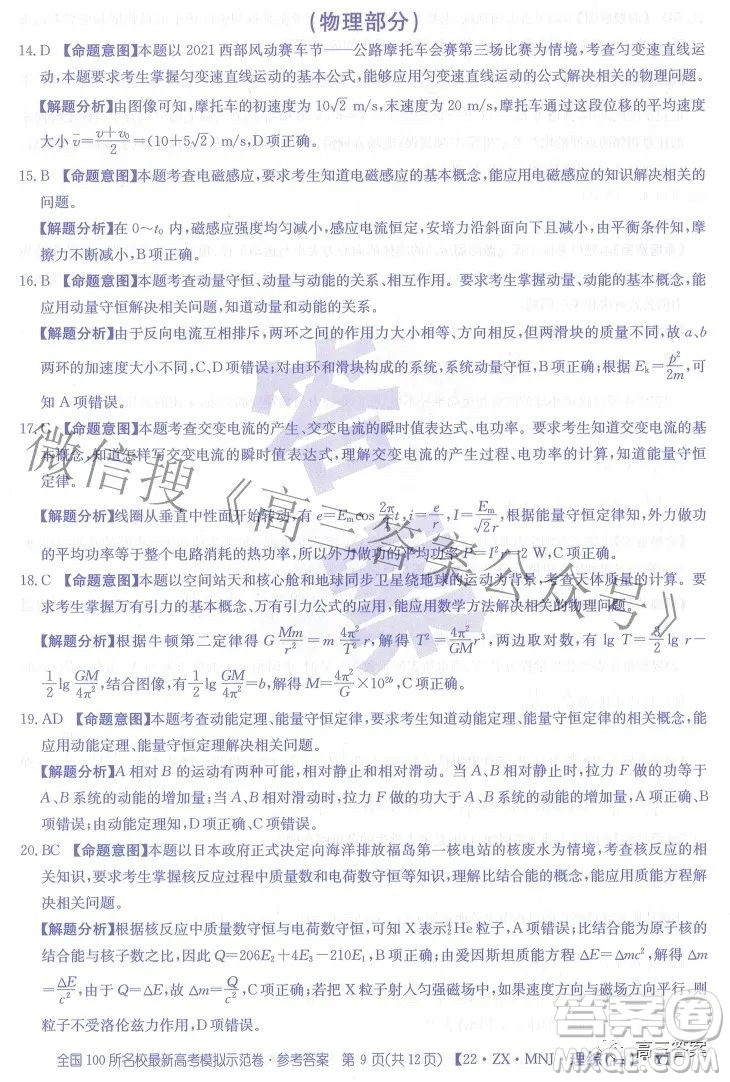 (物理部分)
14. D 【命题意图】本题以 2021 西部风动赛车节——公路摩托车会赛第三场比赛为情境，考查匀变速直线运
动，本题要求考生掌握匀变速直线运动的基本公式，能够应用匀变速直线运动的公式解决相关的物理问题。
【解题分析】由图像可得，摩托车的初速度为 10√2 m/s，末速度为 20 m/s，摩托车通过这段位移的平均速度
大小 v̄=(v+v₀)/2=(10+5√2) m/s，D项正确。
15. B 【命题意图】本题考查电磁感应，要求考生知道电磁感应的基本概念，能用电磁感应的知识解决相关的
问题。
【解题分析】在 0～t₀ 内，磁感应强度均匀减小，感应电流恒定，安培力沿斜面向下且减小，由平衡条件知，摩
擦力不断减小，B项正确。
16. B 【命题意图】本题考查动量守恒、动量与动能的关系、相互作用。要求考生掌握动量、动能的基本概念，能
应用动量守恒解决相关问题，知道动量和动能的关系。
【解题分析】由于反向电流互相排斥，两环之间的作用力大小相等、方向相反，但两滑块的质量不同，故 a、b
两环的加速度大小不同，C、D项错误；对由环和滑块构成的系统，系统动量守恒，B项正确；根据 Eₖ=p²/2m，可
知 A 项错误。
17. C 【命题意图】本题考查交变电流的产生、交变电流的瞬时值表达式、电功率。要求考生知道交变电流的基
本概念，知道怎样写交变电流的瞬时值表达式，理解交变电流的产生过程，能够应用电功率的计算和能量守恒
定律。
【解题分析】线圈从垂直中性面开始转动，有 e=Eₘcos 2π/T t，i=e/r，I=Eₘ/√2r，根据能量守恒定律知，外力做功
的平均功率等于整个电路消耗的热功率，所以外力做功的平均功率 P=I²r=2 W，C项正确。
18. C 【命题意图】本题以空间站天和核心舱和地球同步卫星绕地球的运动为背景，考查天体质量的计算。要
求考生掌握万有引力的基本概念、万有引力公式的应用，能应用数学方法解决相关的物理问题。
【解题分析】根据牛顿第二定律得 G Mm/r²=m 4π²/T² r，解得 T²=4π²/GM r³，两边取对数，有 lg T=3/2 lg r－
1/2 lg GM/4π²，结合图像，有 1/2 lg GM/4π²=b，解得 M=4π²/G×10²ᵇ，C项正确。
19. AD 【命题意图】本题考查动能定理、能量守恒定律，要求考生知道动能定理、能量守恒定律的相关概念，能
应用动能定理、能量守恒定理解决相关问题。
【解题分析】A 相对 B 的运动有两种可能，相对静止和相对滑动。当 A、B 相对静止时，拉力 F 做的功等于
A、B 系统的动能的增加量；当 A、B 相对滑动时，拉力 F 做的功大于 A、B 系统的动能的增加量，A项正确、B
项错误；由动能定理知，D项正确、C项错误。
20. BC 【命题意图】本题以日本政府正式决定向海洋排放福岛第一核电站的核废水为情境，考查核反应的相
关知识，要求考生掌握核反应过程中质量数守恒与电荷数守恒等知识，理解比结合能的概念，能用相关知识
解决相关问题。
【解题分析】根据核反应中质量数守恒与电荷数守恒，可知 X 表示⁴₂He 粒子，A项错误；比结合能为原子核的
结合能与核子数之比，因此 Q=206E₂+4E₃－210E₁，B项正确；由爱因斯坦质能方程 ΔE=Δmc²，解得 Δm
=ΔE/c²，由于 Q=ΔE，故 Δm=Q/c²，C项正确；若把 X 粒子射入匀强磁场中，当速度与磁场平行时，则 X
粒子不受洛伦兹力作用，D项错误。
全国 100 所名校最新高考模拟示范卷·参考答案 第 9 页(共 12 页) 【22·ZX·MNJ 理综
答案
微信搜《高三答案公众号》
高三答案